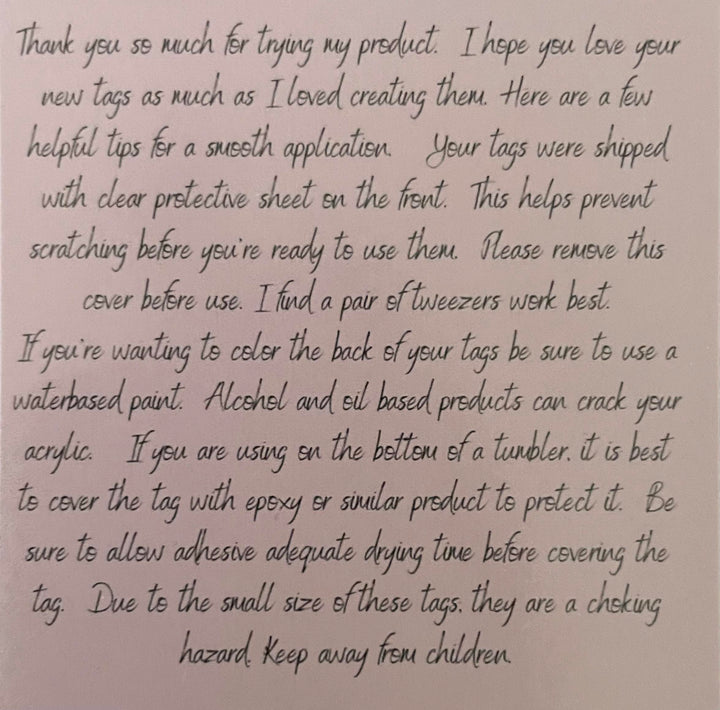 Thank you so much for trying my product. I hope you love your
new tags as much as I loved creating them. Here are a few
helpful tips for a smooth application. Your tags were shipped
with clear protective sheet on the front. This helps prevent
scratching before you're ready to use them. Please remove this
cover before use. I find a pair of tweezers work best.
If you're wanting to color the back of your tags be sure to use a
waterbased paint. Alcohol and oil based products can crack your
acrylic. If you are using on the bottom of a tumbler, it is best
to cover the tag with epoxy or similar product to protect it. Be
sure to allow adhesive adequate drying time before covering the
tag. Due to the small size of these tags, they are a choking
hazard. Keep away from children.